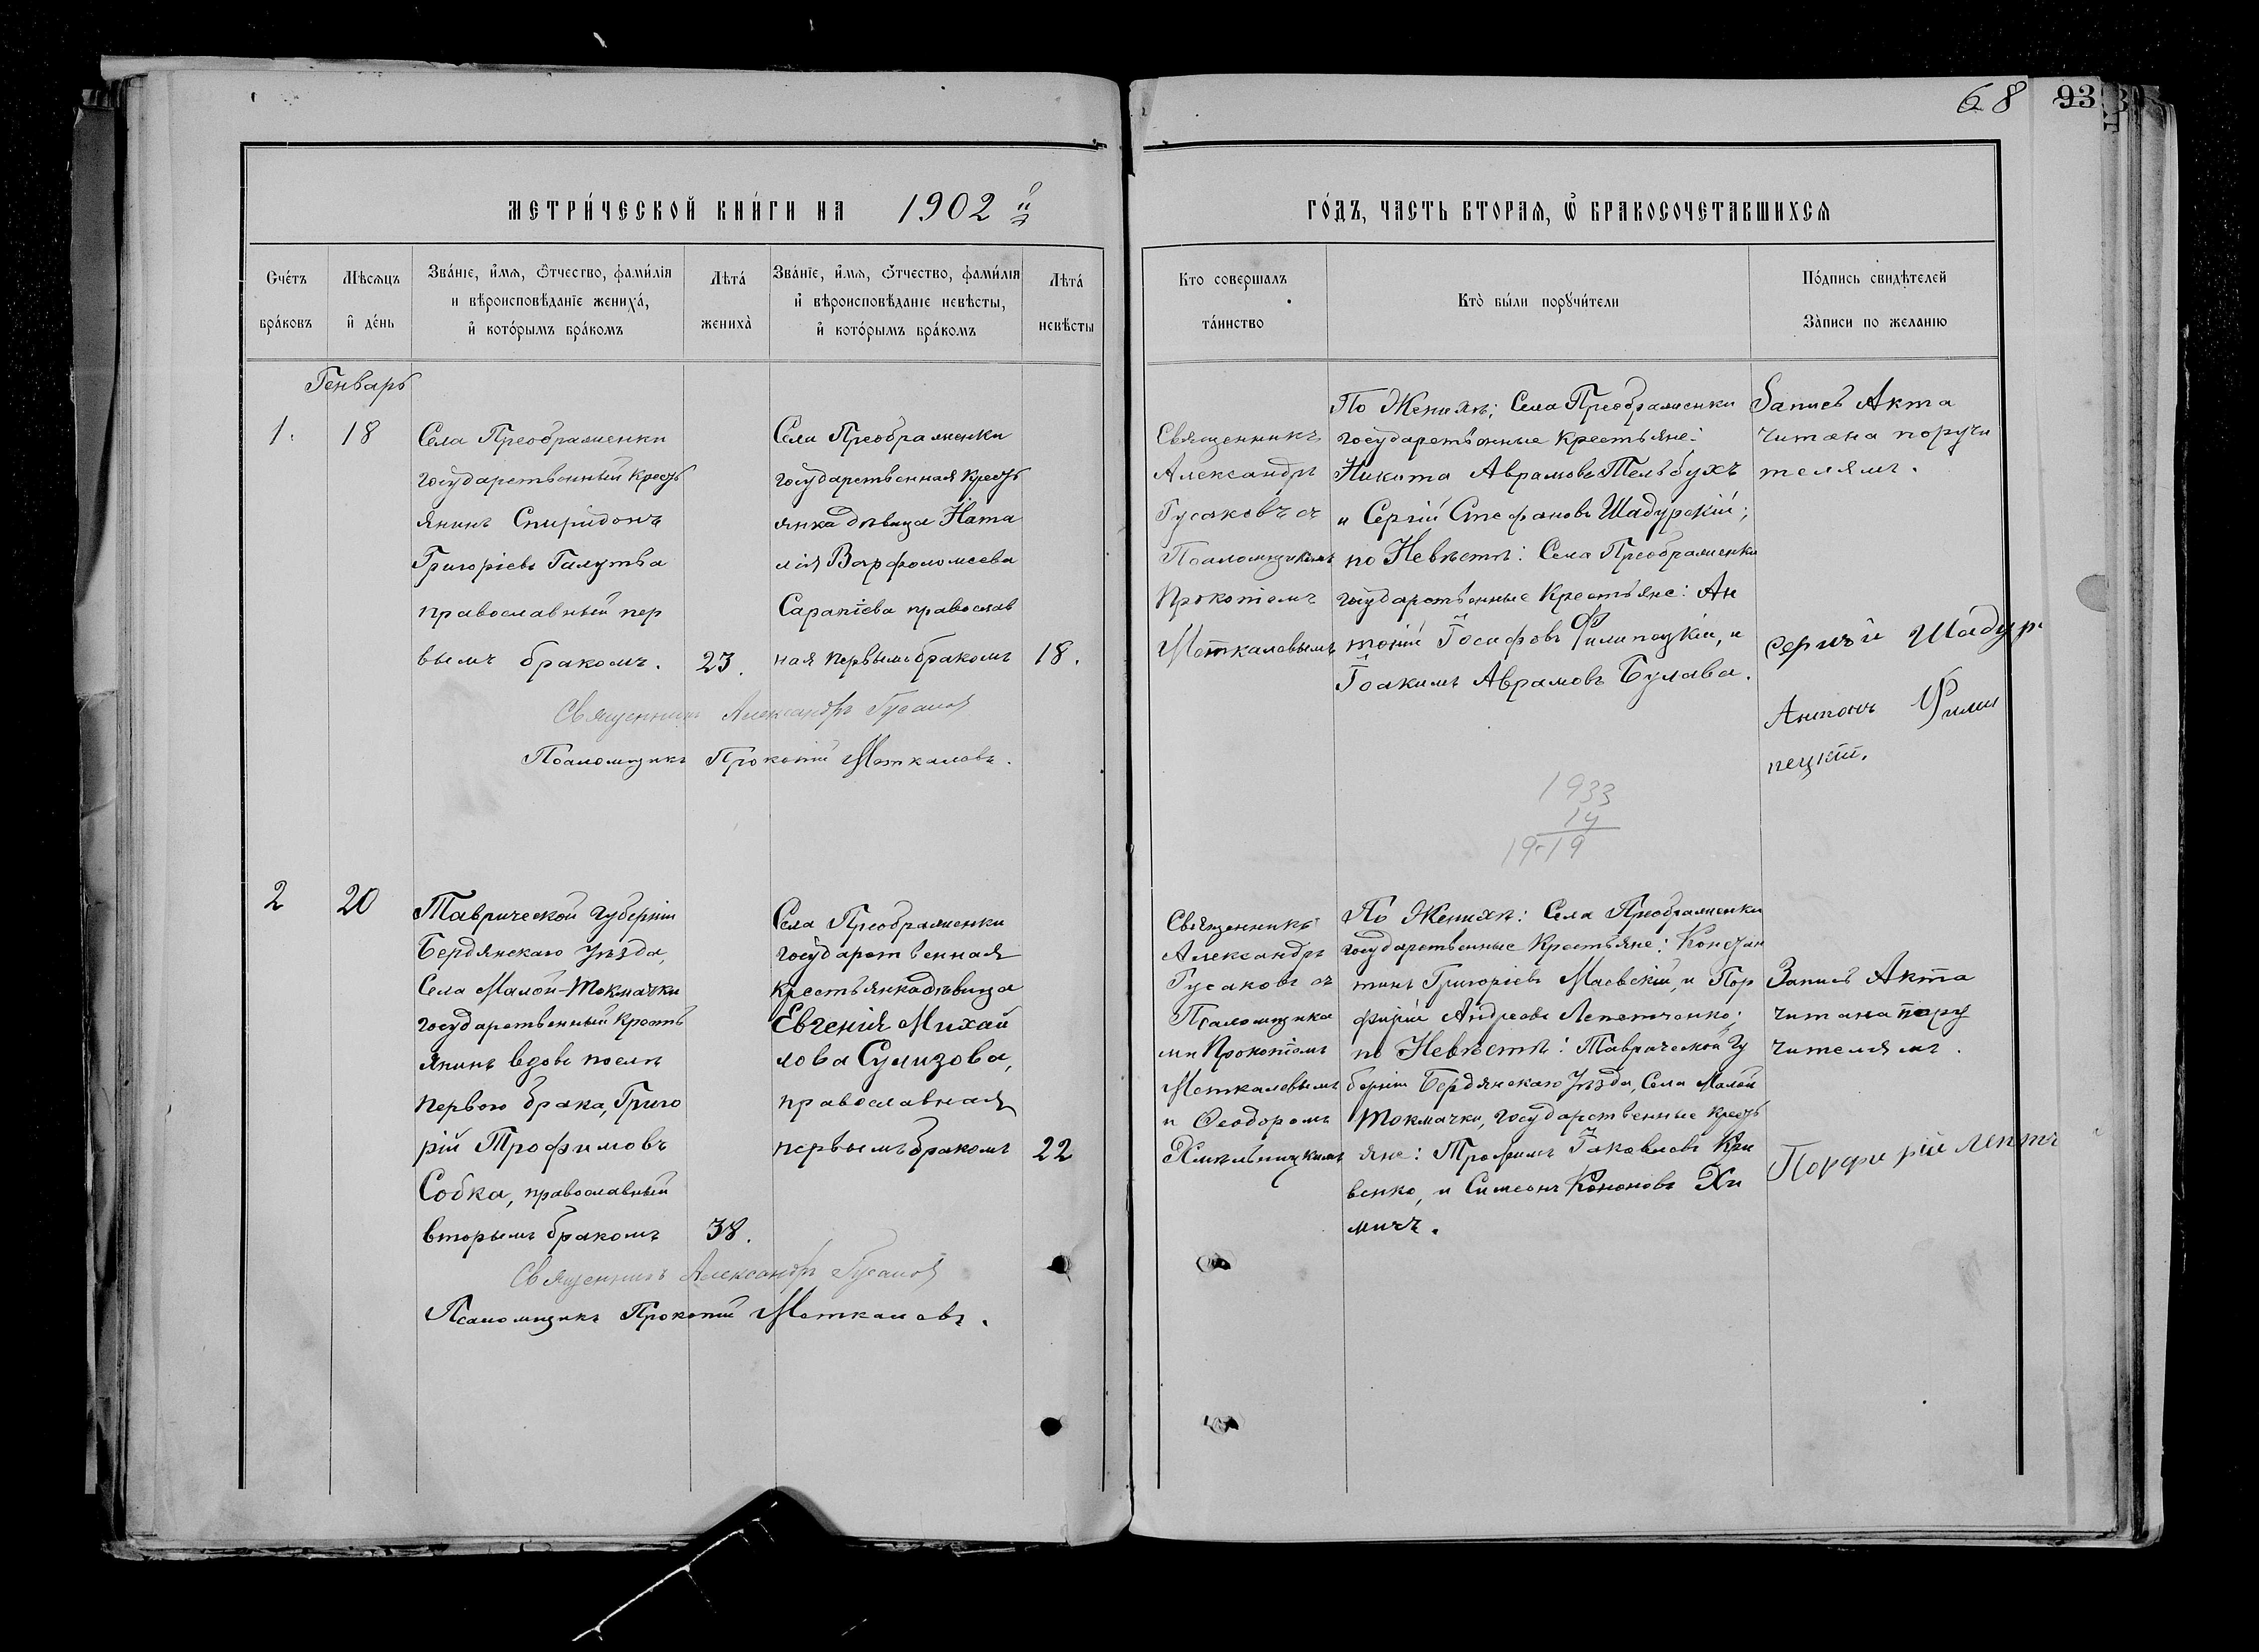 68 93
МЕТРИ́ЧЕСКОЙ КНИ́ГИ НА 1902 й
ГО́ДЪ, ЧАСТЬ ВТОРАѦ, Ѿ БРАКОСОЧЕТАВШИХСѦ
Счётъ бра́ковъ
Мѣсяцъ и҆ де́нь
Зва́нїе, и҆́мѧ, ѻ҆́тчество, фами́лїѧ и вѣроисповѣ́данїе жениха́, и҆ кото́рымъ бра́комъ
Лѣта́ жениха̀
Зва́нїе, и҆́мѧ, ѻ҆́тчество, фами́лїѧ и҆ вѣроисповѣ́данїе невѣсты, и҆ кото́рымъ бра́комъ
Лѣта́ невѣ́сты
Кто совершалъ та́инство
Кто̀ бы́ли порꙋчи́тели
По́дпись свидѣ́телей За̀писи по желанію
Генварь
1.
18
Села Преображенки
государственный кресть
янинъ Спиридонъ
Григоріевъ Галутва
православный пер
вымъ бракомъ.
23.
Села Преображенки
государственная кресть
янка девица Ната
лія Варфоломеева
Сарапіева православ
ная первымъ бракомъ
18.
Священникъ Александръ Гусаковъ
Псаломщикъ Прокопій Меткаловъ.
Священникъ
Александръ
Гусаковъ съ
Псаломщикомъ
Прокопіемъ
Меткаловымъ
По Женихѣ: Села Преображенки
государственные крестьяне:
Никита Аврамовъ Тельбухъ
и Сергій Стефановъ Шадурскій;
по Невѣстѣ: Села Преображенки
государственные Крестьяне: Ан
тоній Іосифовъ Филипецкій, и
Іоакимъ Аврамовъ Булава.
Запись Акта
читана поручи
телямъ.
Сергѣй Шадур
Антонъ Фили
пецкій.
1933
14
19-19
2
20
Таврической Губерніи
Бердянскаго Уѣзда,
Села Малой-Токмачки
государственный Кресть
янинъ вдовъ послѣ
первого брака, Григо
рій Трофимовъ
Собка, православный
вторымъ бракомъ
38.
Села Преображенки
государственная
крестьянка дѣвица
Евгенія Михай
лова Сулизова,
православная
первымъ бракомъ
22
Священникъ Александръ Гусаковъ
Псаломщикъ Прокопій Меткаловъ.
Священникъ
Александръ
Гусаковъ съ
Псаломщика
ми Прокопіемъ
Меткаловымъ
и Ѳеодоромъ
Хмѣльницкимъ
По Женихѣ: Села Преображенки
государственные Крестьяне: Констан
тинъ Григоріевъ Маевскій, и Пор
фирій Андреевъ Лепетченко;
по Невѣстѣ: Таврической Гу
берніи Бердянскаго Уѣзда, Села Малой
Токмачки, государственные кресть
яне: Трофимъ Іаковлевъ Кри
венко, и Симеонъ Кононовъ Хи
мичъ.
Запись Акта
читана пору
чителямъ.
Порфирій Лепетч